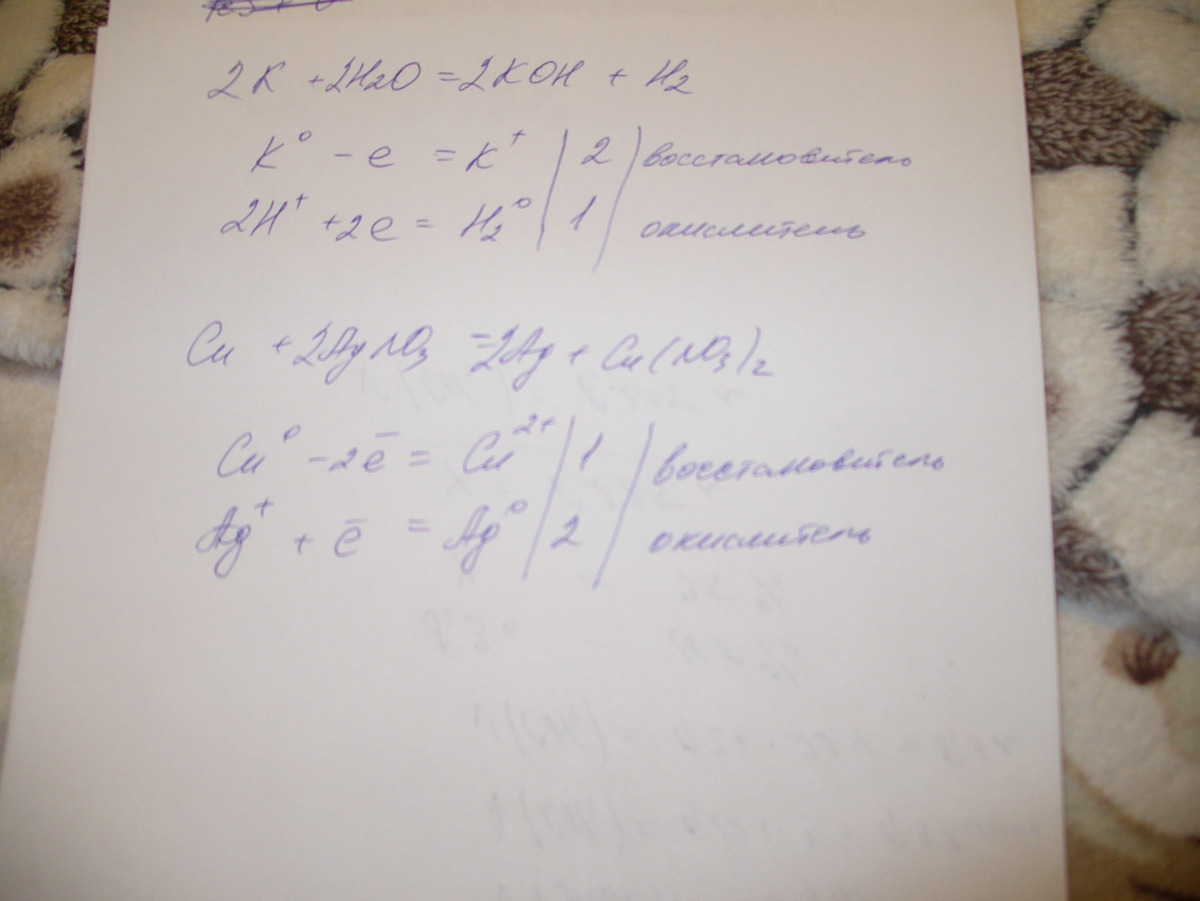 2K + 2H2O = 2KOH + H2
K⁰ - e = K⁺ | 2 | восстановитель
2H⁺ + 2e = H2⁰ | 1 | окислитель
Cu + 2AgNO3 = 2Ag + Cu(NO3)2
Cu⁰ - 2e̅ = Cu²⁺ | 1 | восстановитель
Ag⁺ + e̅ = Ag⁰ | 2 | окислитель